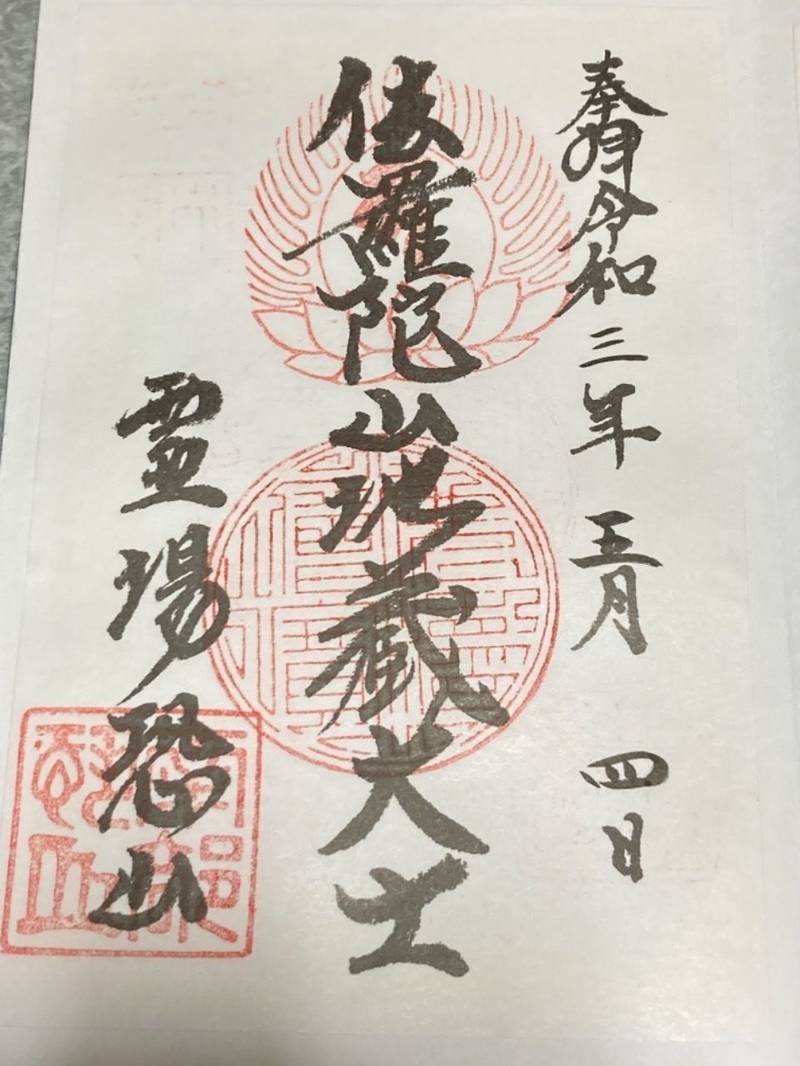 奉拝 令和三年五月四日
伽羅陀山地蔵大士
霊場恐山